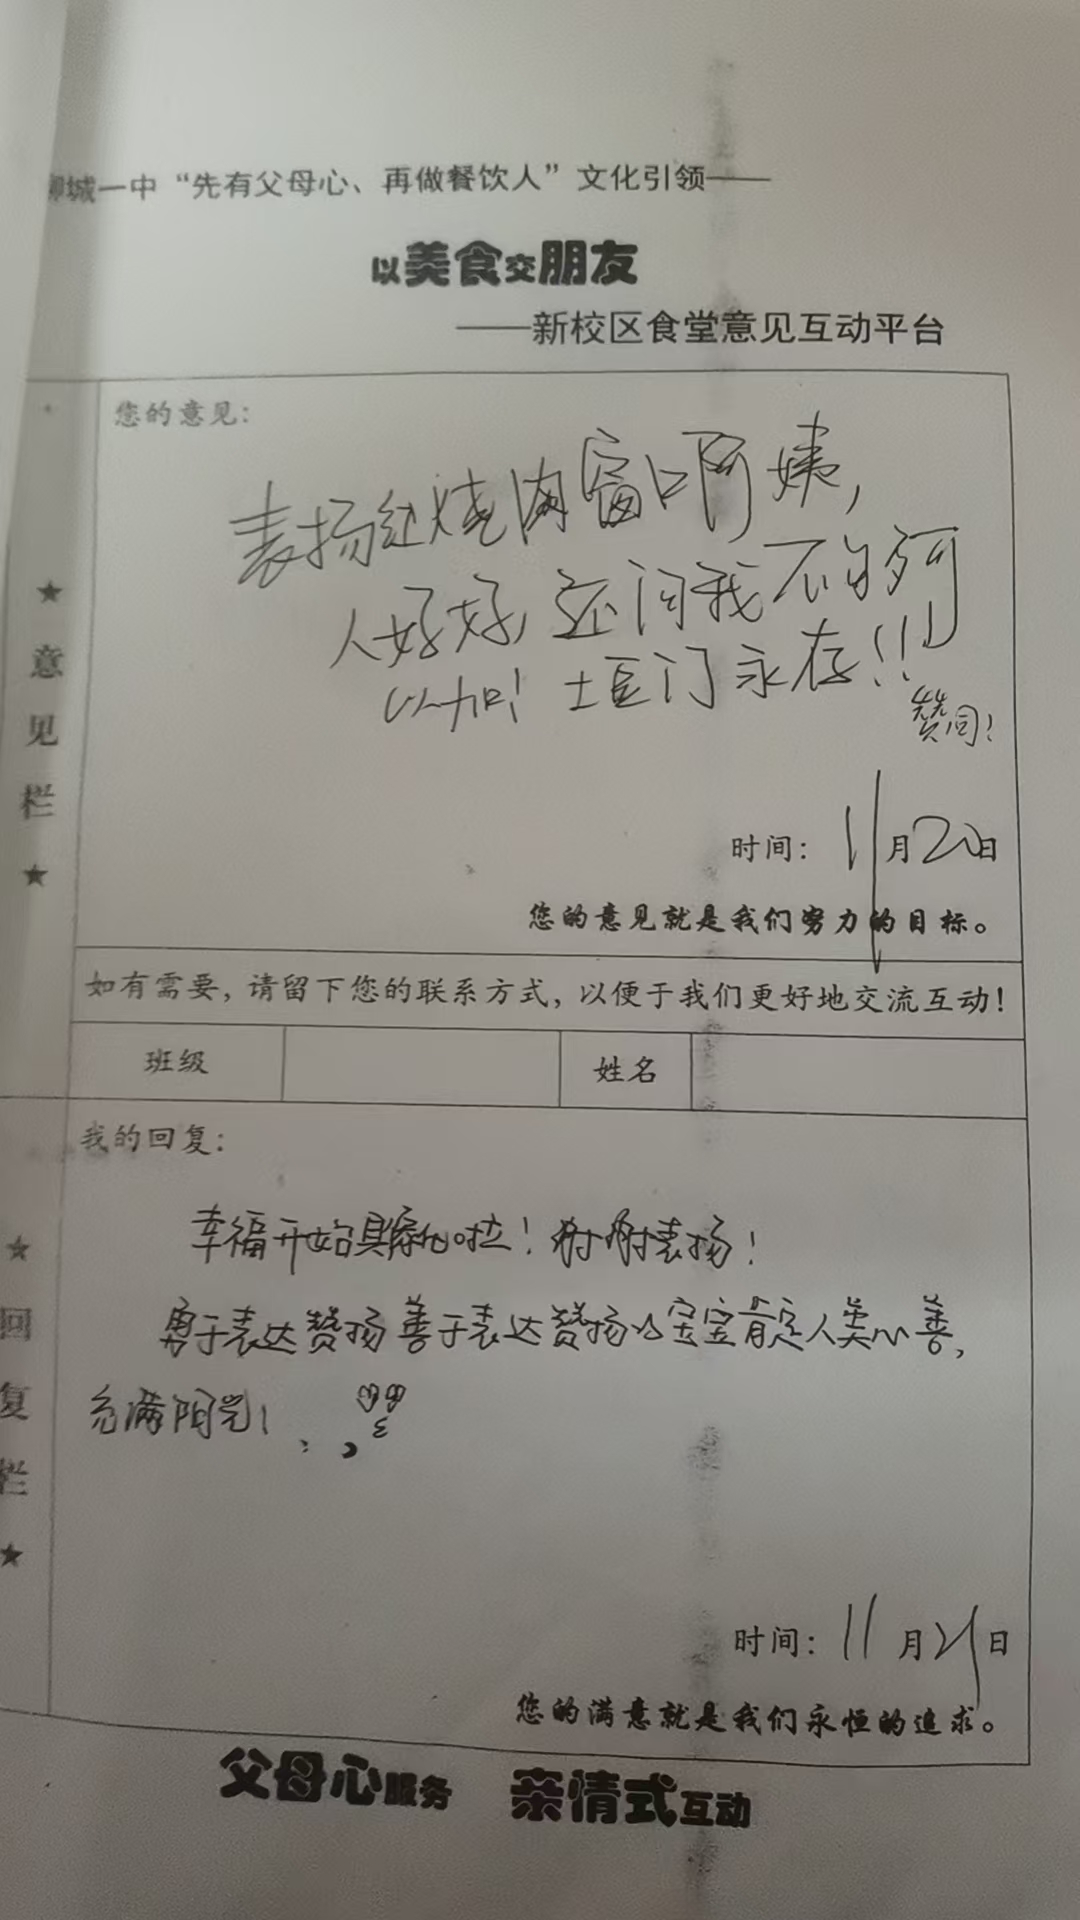 聊城一中“先有父母心、再做餐饮人”文化引领——
以美食交朋友
——新校区食堂意见互动平台
★意见栏★
您的意见：
表扬红烧肉窗口阿姨，
人好好，还问我不够可
以加！土豆门永存！！！
赞同！
时间：11月20日
您的意见就是我们努力的目标。
如有需要，请留下您的联系方式，以便于我们更好地交流互动！
班级
姓名
★回复栏★
我的回复：
幸福开始具象化啦！谢谢表扬！
勇于表达赞扬善于表达赞扬的宝宝肯定人美心善，
充满阳光！
时间：11月21日
您的满意就是我们永恒的追求。
父母心服务 亲情式互动